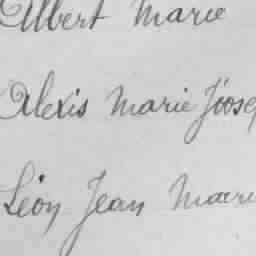 Albert Marie
Alexis Marie Joose
Léon Jean Marie